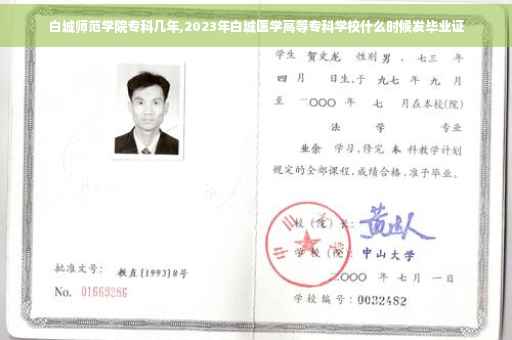 白城师范学院专科几年,2023年白城医学高等专科学校什么时候发毕业证
学生 贺文龙 性别 男 , 七三 年
四 月 日生,于 九七 年 九 月
至 二〇〇〇 年 七 月在本校(院)
法 学 专业
业余 学习,修完 本 科教学计划
规定的全部课程,成绩合格,准予毕业。
校(院)长:
学 校(院): 中山大学
二〇〇〇 年 七 月 一 日
学校编号: 0032482
批准文号: 教直[1993]8号
No. 01663286